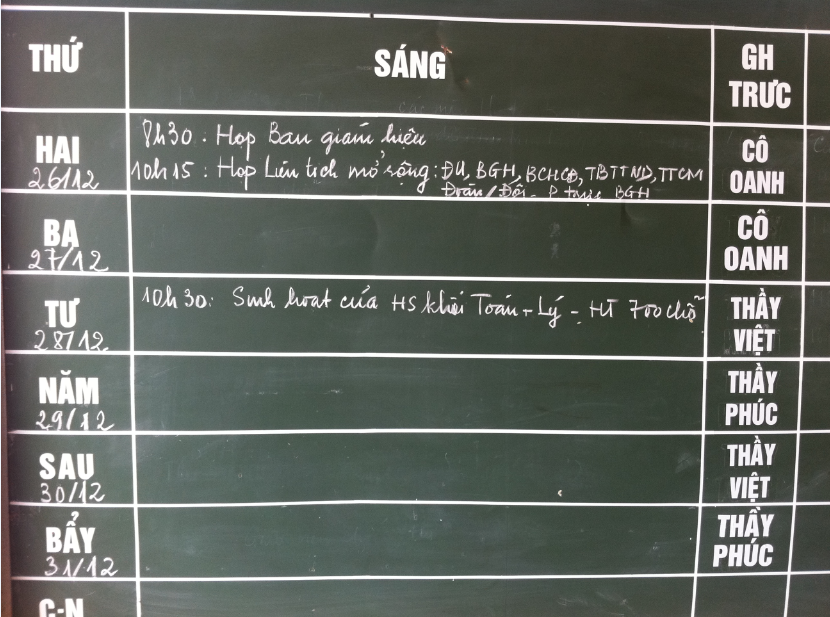 THỨ SÁNG GH TRỰC
HAI 26/12 8h30: Họp Ban giám hiệu CÔ OANH
10h15: Họp Liên tịch mở rộng: ĐU, BGH, BCHCĐ, TBTTND, TTCM
Đoàn/Đội - P trực BGH
BA 27/12 CÔ OANH
TƯ 28/12 10h30: Sinh hoạt của HS khối Toán - Lý - HT 700 chỗ THẦY VIỆT
NĂM 29/12 THẦY PHÚC
SAU 30/12 THẦY VIỆT
BẨY 31/12 THẦY PHÚC
C-N